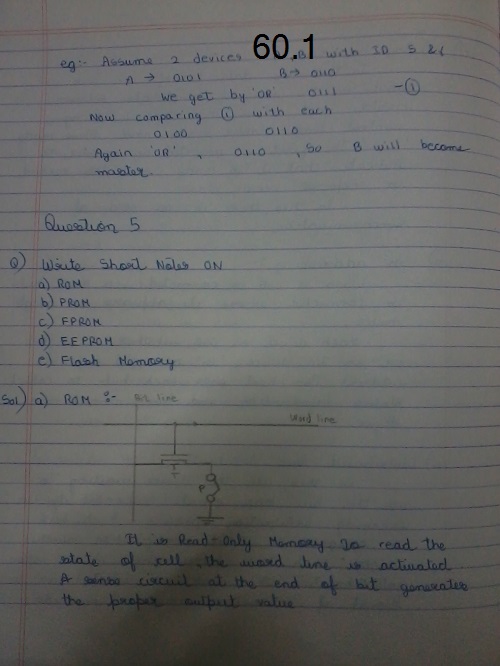 60.1
eg:- Assume 2 devices B with ID 5 &
A → 0101 B → 0110
We get by 'OR' 0111 -①
Now comparing ① with each
0100 0110
Again 'OR', 0110, So B will become
master.
Question 5
Q) Write Short Notes ON
a) ROM
b) PROM
c) EPROM
d) EEPROM
e) Flash Memory
Sol) a) ROM :- Bit line
Word line
T
P
It is Read-Only Memory To read the
state of cell, the word line is activated
A sense circuit at the end of bit generates
the proper output value